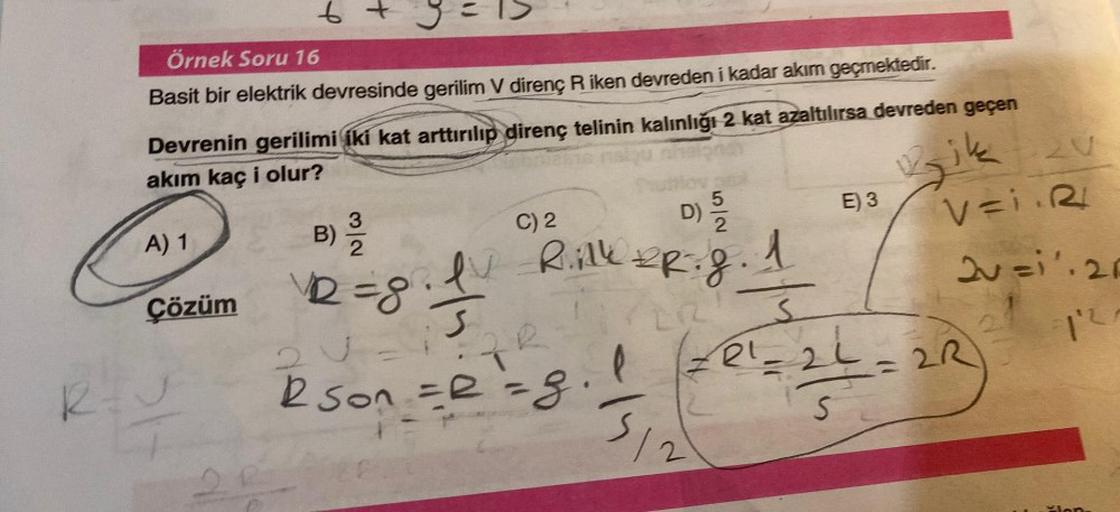 6 + 9 = 15
Örnek Soru 16
Basit bir elektrik devresinde gerilim V direnç R iken devreden i kadar akım geçmektedir.
Devrenin gerilimi iki kat arttırılıp direnç telinin kalınlığı 2 kat azaltılırsa devreden geçen
akım kaç i olur?
A) 1 B) 3/2 C) 2 D) 5/2 E) 3
V = i . R
2V = i' . 2
Çözüm
R = g . l/s
R.ilk = R = g . l/s
R son = R' = g . l/s/2
= R' = 2L/s = 2R